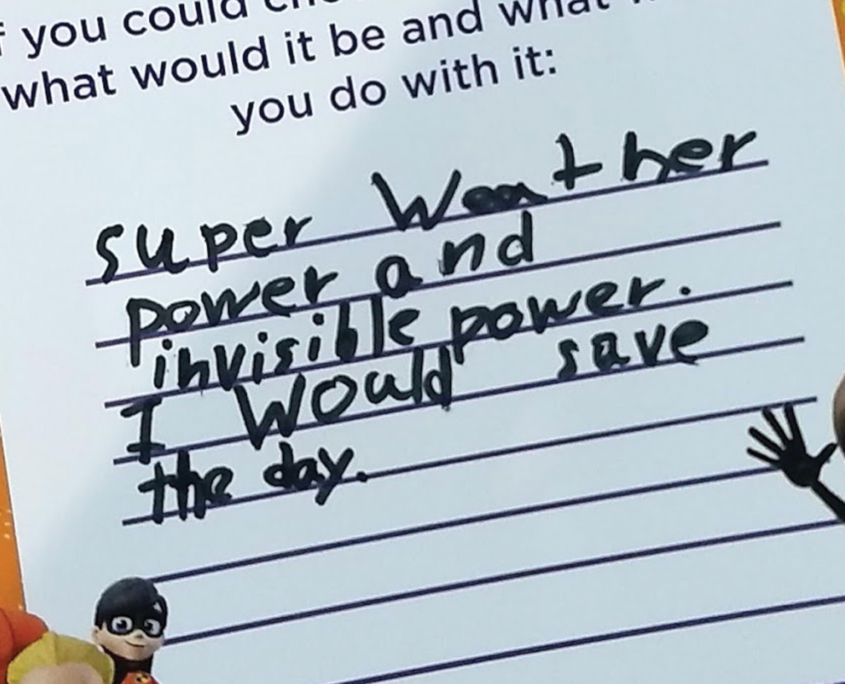 you could
what would it be and what
you do with it:
super Weather
power and
invisible power.
I Would save
the day.